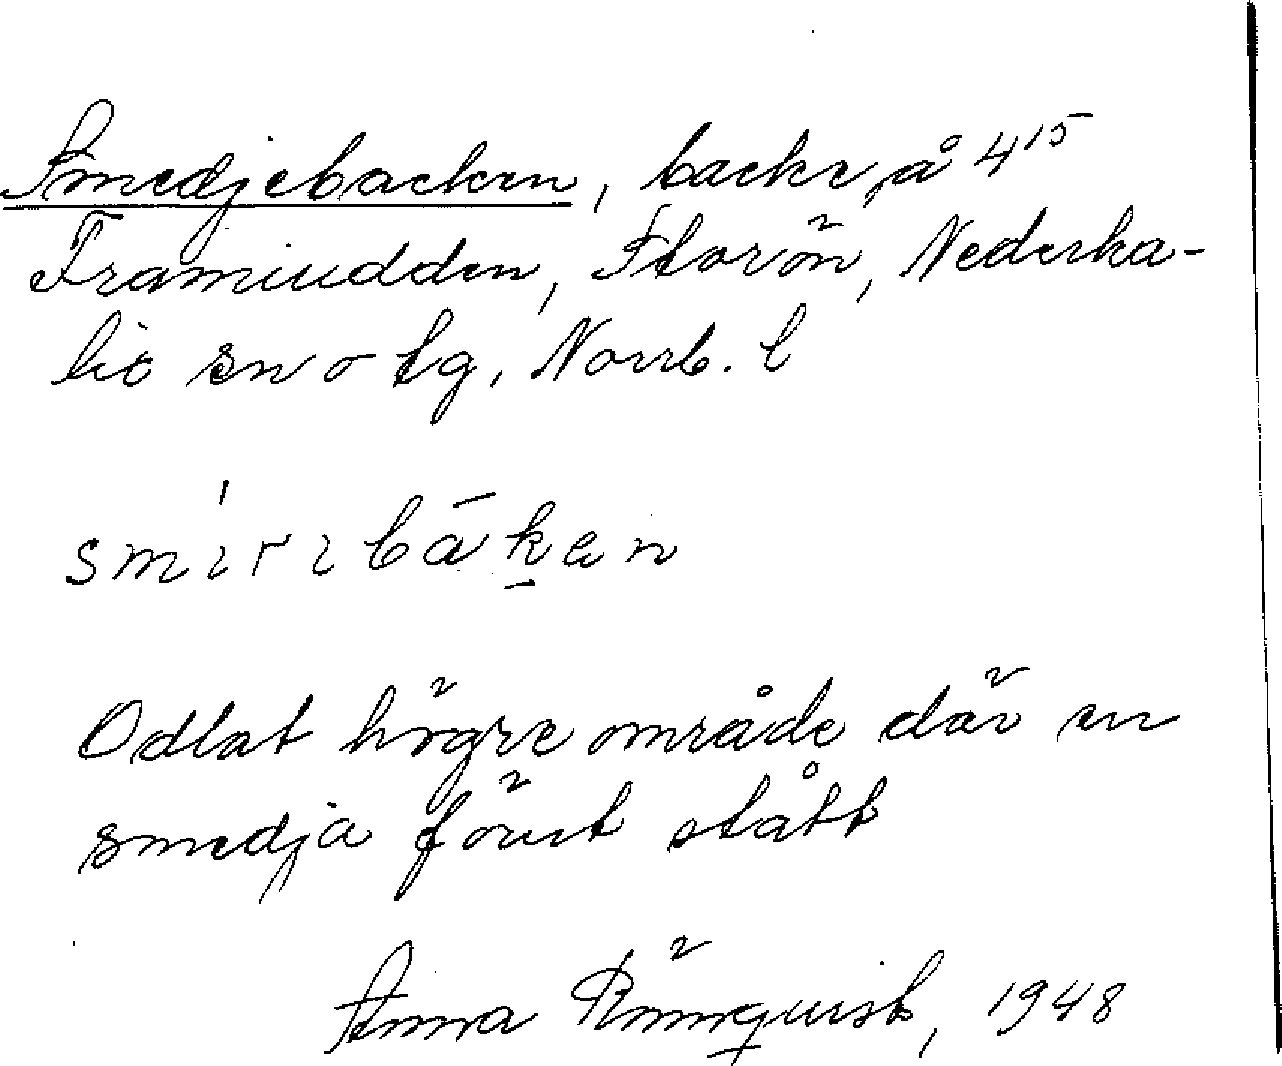 Smedjebacken, backe, å 4¹⁵
Framiudden, Storön, Nederka-
lix sn o tg, Norrb. l
smiribáken
Odlat högre område där en
smedja förut stått
Anna Rönnquist, 1948